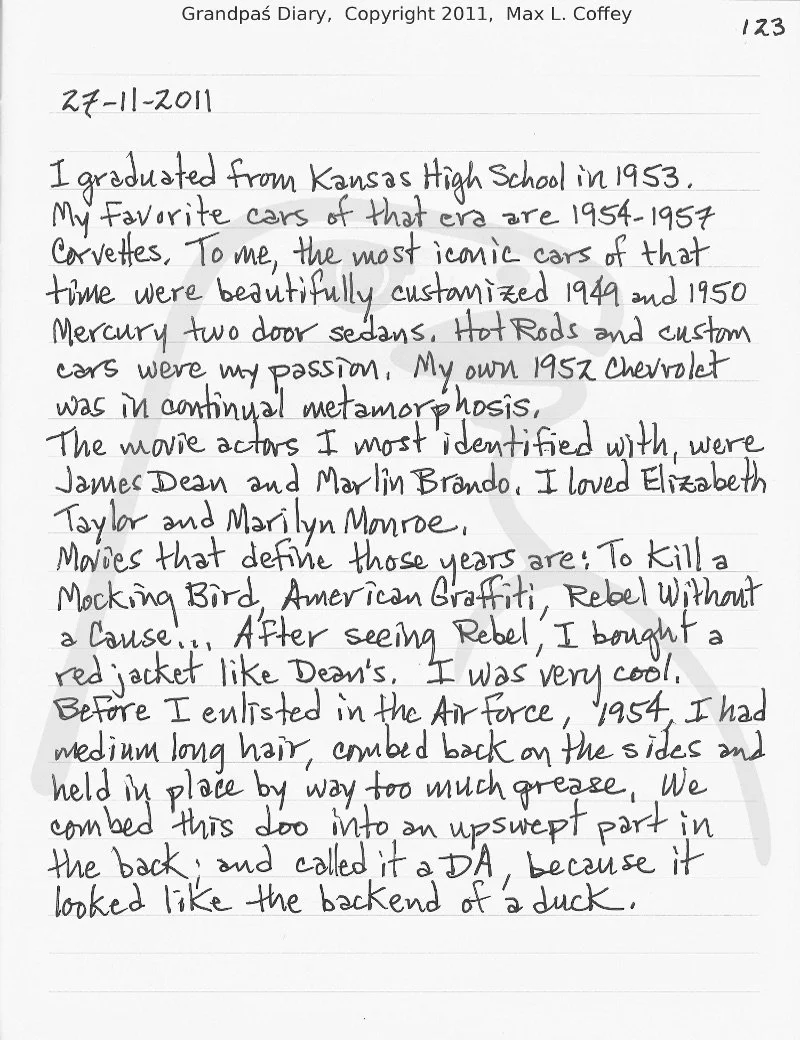 Grandpaś Diary, Copyright 2011, Max L. Coffey
123
27-11-2011
I graduated from Kansas High School in 1953.
My favorite cars of that era are 1954-1957
Corvettes. To me, the most iconic cars of that
time were beautifully customized 1949 and 1950
Mercury two door sedans. Hot Rods and custom
cars were my passion. My own 1952 Chevrolet
was in continual metamorphosis.
The movie actors I most identified with, were
James Dean and Marlin Brando. I loved Elizabeth
Taylor and Marilyn Monroe.
Movies that define those years are: To Kill a
Mocking Bird, American Graffiti, Rebel Without
a Cause... After seeing Rebel, I bought a
red jacket like Dean's. I was very cool.
Before I enlisted in the Air Force, 1954, I had
medium long hair, combed back on the sides and
held in place by way too much grease. We
combed this doo into an upswept part in
the back; and called it a DA, because it
looked like the backend of a duck.